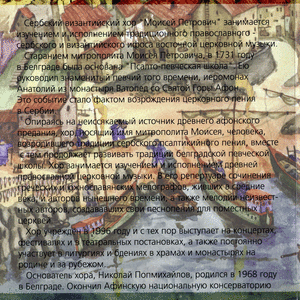 Сербский византийский хор "Моисей Петрович" занимается
изучением и исполнением традиционного православного -
сербского и византийского хороса восточной церковной музыки.
Старанием митрополита Моисея Петровича, в 1731 году
в Белграде была основана "Псалто-певческая школа". Ею
руководил знаменитый певчий того времени, иеромонах
Анатолий из монастыря Ватопед со Святой Горы Афон
это событие стало фактом возрождения церковного пения
в Сербии.
Опираясь на неистощимый источник древнего афонского
предания, хор, носящий имя митрополита Моисея, человека,
возродившего традиции сербского псалтикийного пения, вместе
с тем продолжает развивать традиции белградской певческой
школы. Хор занимается изучением и исполнением древней
православной церковной музыки. В его репертуаре сочинения
греческих и южнославянских мелографов, живших в средние
века и авторов нынешнего времени, а также мелодии неизвест-
ных авторов, создававших свои песнопения для поместных
церквей.
Хор учрежден в 1996 году и с тех пор выступает на концертах,
фестивалях и в театральных постановках, а также постоянно
участвует в литургиях и бдениях в храмах и монастырях на
родине и за рубежом.
Основатель хора, Николай Попмихайлов, родился в 1968 году
в Белграде. Окончил Афинскую национальную консерваторию